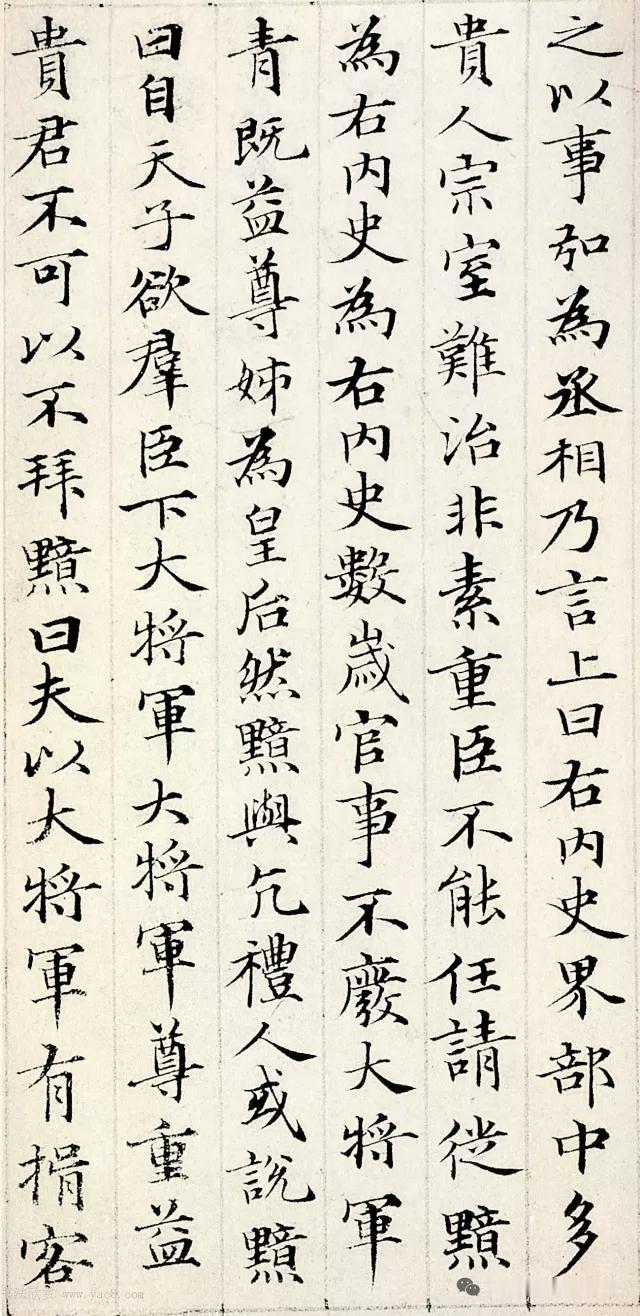 之以事弘為丞相乃言上曰右内史界部中多
貴人宗室難治非素重臣不能任請徙黯
為右内史為右内史數歲官事不廢大將軍
青既益尊姊為皇后然黯與亢禮人或說黯
曰自天子欲羣臣下大將軍大將軍尊重益
貴君不可以不拜黯曰夫以大將軍有揖客
www.yac8.com